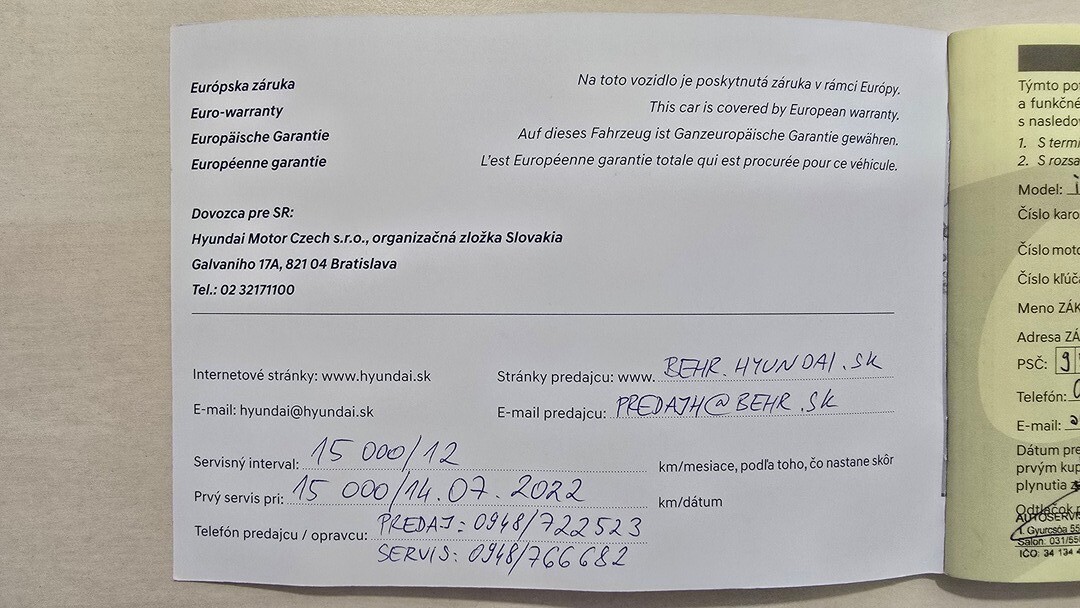 Európska záruka
Na toto vozidlo je poskytnutá záruka v rámci Európy.
Euro-warranty
This car is covered by European warranty.
Europäische Garantie
Auf dieses Fahrzeug ist Ganzeuropäische Garantie gewähren.
Européenne garantie
L'est Européenne garantie totale qui est procurée pour ce véhicule.
Dovozca pre SR:
Hyundai Motor Czech s.r.o., organizačná zložka Slovakia
Galvaniho 17A, 821 04 Bratislava
Tel.: 02 32171100
Internetové stránky: www.hyundai.sk
Stránky predajcu: www. BEHR.HYUNDAI.SK
E-mail: hyundai@hyundai.sk
E-mail predajcu: PREDAJH@BEHR.SK
Servisný interval: 15 000/12 km/mesiace, podľa toho, čo nastane skôr
Prvý servis pri: 15 000/14.07.2022 km/dátum
Telefón predajcu / opravcu: PREDAJ: 0948/722523
SERVIS: 0948/766682
Týmto
a funkčné
s nasledov
1. S termí
2. S rozsa
Model:
Číslo karo
Číslo moto
Číslo kľúča
Meno ZÁK
Adresa ZÁ
PSČ: 9
Telefón:
E-mail:
Dátum pre
prvým kup
plynutia
Odtlačok
AUTOSERV
Gyurcsóa 55
Salón: 031/55
IČO: 34 134